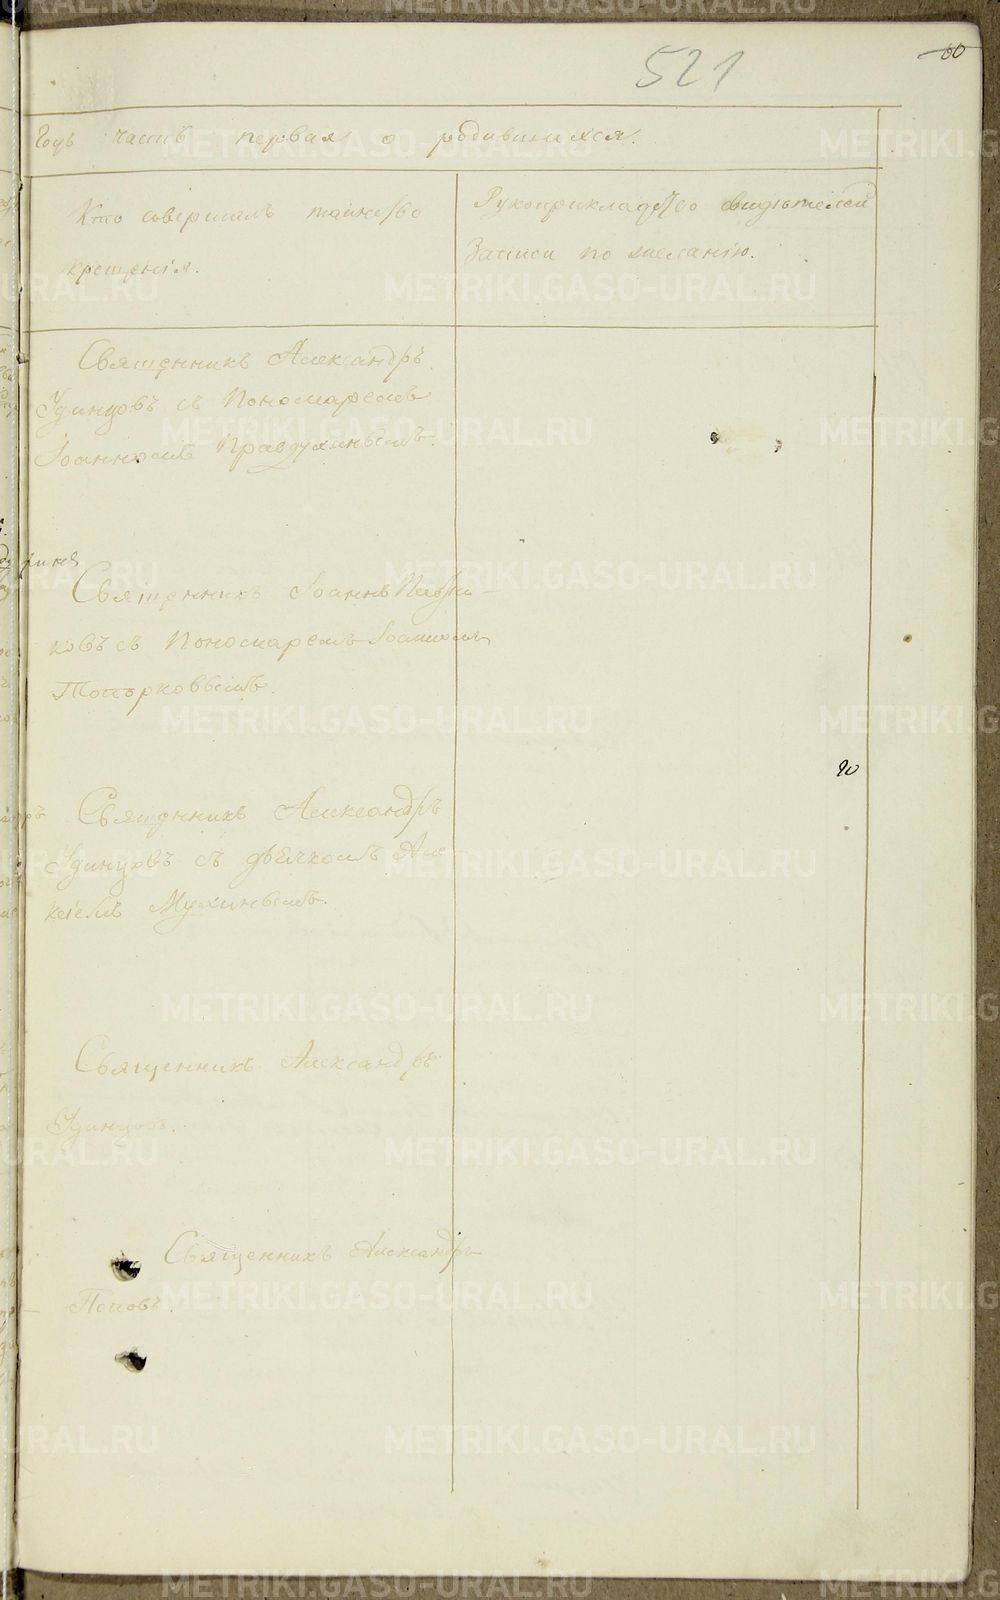 521
60
Годъ часть первая о родившихся.
Кто совершалъ таинство
крещенія.
Рукоприкладство свидѣтелей
записи по желанію.
Священникъ Александръ
Удинцовъ съ Пономаремъ
Іоанномъ Правдухинымъ.
Священникъ Іоаннъ
ковъ съ Пономаремъ Іоанномъ
Топорковымъ.
Священникъ Александръ
Удинцовъ съ дьячкомъ Але
ксіемъ Мухинымъ.
Священникъ Александръ
Удинцовъ.
Священникъ Александръ
Поповъ.
METRIKI.GASO-URAL.RU